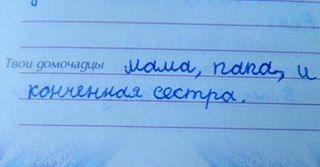 Твои домочадцы мама, папа, и
конченная сестра.